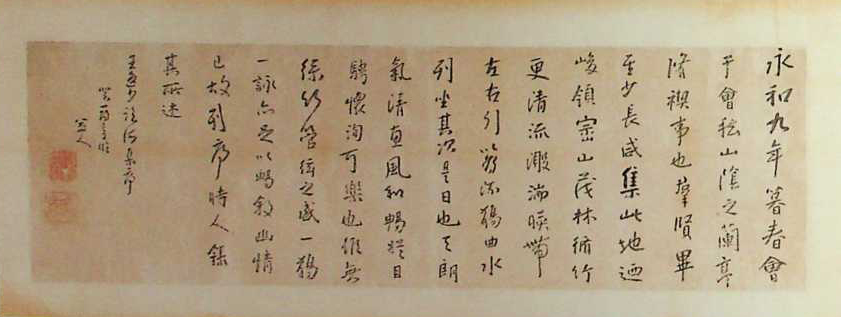 永和九年暮春會
于會稽山陰之蘭亭
脩禊事也羣賢畢
至少長咸集此地迺
峻領崇山茂林脩竹
更清流激湍暎帶
左右引以為流觴曲水
列坐其次是日也天朗
氣清惠風和暢娛目
騁懷洵可樂也雖無
絲竹管絃之盛一觴
一詠亦足以暢敘幽情
已故列序時人錄
其所述
王逸少臨河集序
癸酉